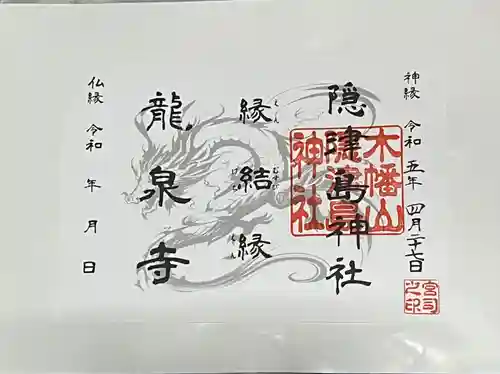 神縁 令和五年 四月二十七日
隠津島神社
木幡山
隠津島
神社
宮司
之印
縁結縁
龍泉寺
仏縁 令和 年 月 日